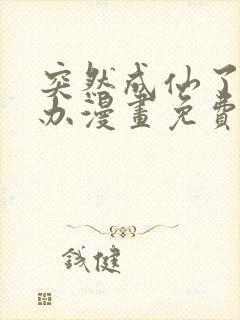 突然成仙了
办漫畫免費
錢健